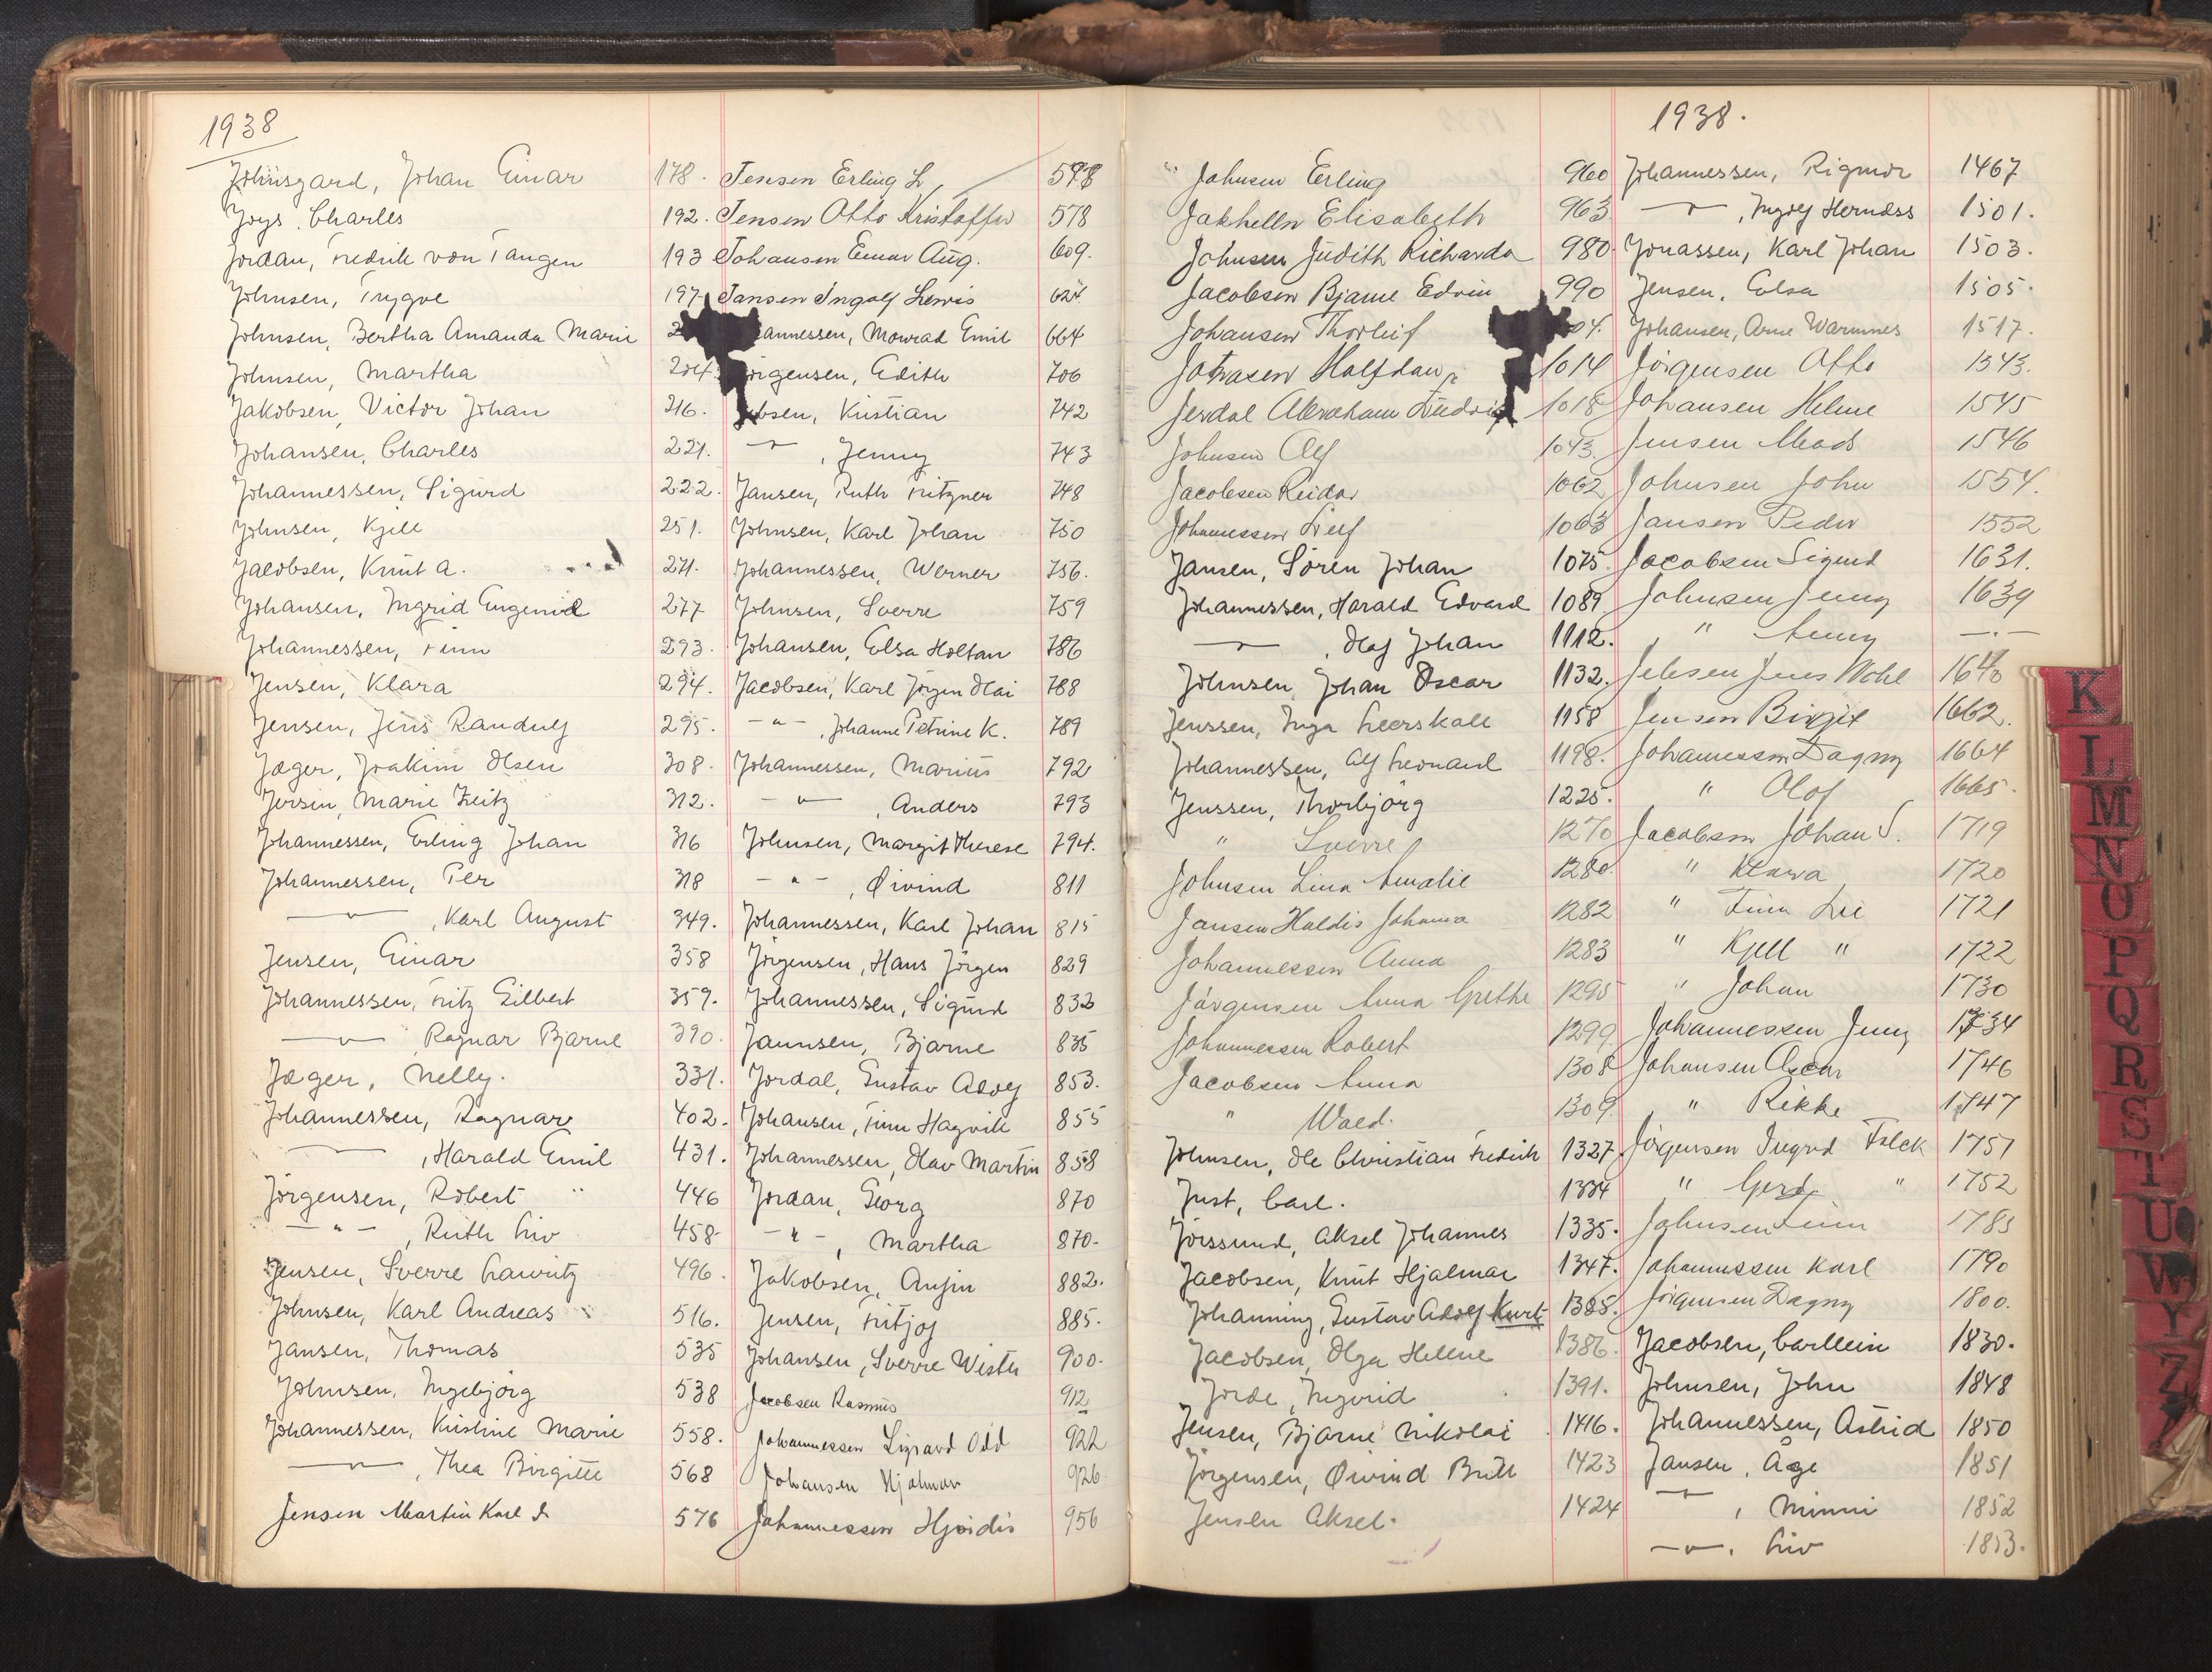 1938
Johnsgard, Johan Einar 178.
Joys. Charles 192.
Jordan, Fredrik von Tangen 193
Johnsen, Trygve 197
Johnsen, Bertha Amanda Marie 2
Johnsen, Martha 204.
Jakobsen, Victor Johan 216.
Johansen, Charles 221.
Johannessen, Sigurd 222.
Johnsen, Kjell 251.
Jacobsen, Knut A. 271.
Johansen, Ingrid Eugenie 277
Johannessen, Finn 293.
Jensen, Klara 294.
Jensen, Jens Randulf 295.
Jæger, Joakim Olsen 308.
Jersin, Marie Zeitz 312.
Johannessen, Erling Johan 316
Johannessen, Per 318
—"— , Karl August 349.
Jensen, Einar 358
Johannessen, Fritz Gilbert 359.
—"— , Ragnar Bjarne 390.
Jæger, Nelly. 331.
Johannessen, Ragnar 402.
— , Harald Emil 431.
Jörgensen, Robert 446
—"— , Ruth Liv 458
Jensen, Sverre Lauritz 496.
Johnsen, Karl Andreas 516.
Jansen, Thomas 535
Johnsen, Ingebjørg 538
Johannessen, Kristine Marie 558.
—"— , Thea Birgitte 568
Jensen Martin Karl J. 576
Jensen Erling L.
Jensen Otto Kristoffer 578
Johansen Einar Aug. 609.
Jansen Ingolf Lewis 624
annessen, Monrad Emil 664
örgensen, Edith 706
bsen, Kristian 742
—"— , Jenny 743
Jansen, Ruth Fritzner 748
Johnsen, Karl Johan 750
Johannessen, Werner 756.
Johnsen, Sverre 759
Johansen, Elsa Holtan 786
Jacobsen, Karl Jörgen Olai 788
—"— , Johanne Petrine K. 789
Johannessen, Marius 792
—"— , Anders 793
Johnsen, Margit Therese 794.
—"— , Øivind 811
Johannessen, Karl Johan 815
Jörgensen, Hans Jörgen 829
Johannessen, Sigurd 832
Jaunsen, Bjarne 835
Jordal, Gustav Adolf 853.
Johansen, Finn Hagvik 855
Johannessen, Olav Martin 858
Jordan, Georg 870
—"— , Martha 870.
Jakobsen, Anfin 882.
Jensen, Fritjof 885.
Johansen, Sverre Wister 900.
Jacobsen Rasmus 912
Johannessen Sigvard Odd 922
Johansen Hjalmar 926
Johannessen Hjördis 956
1938.
Johnsen Erling 960
Jakhelln Elisabeth 963
Johnsen Judith Richarda 980
Jacobsen Bjarne Edvin 990
Johansen Thorleif 04.
Halfdan 1014
Jerdal Abraham Ludvig 1018
Johnsen Alf 1043
Jacobsen Reidar 1062
Johannessen Leif 1063
Jansen, Sören Johan 1075.
Johannessen, Harald Edvard 1089
—"— , Olaf Johan 1112.
Johnsen, Johan Oscar 1132.
Jenssen, Inga Leerskall 1158
Johannessen, Alf Leonard 1198.
Jenssen, Thorbjörg 1225.
" Sverre 1270
Johnsen Lina Amalie 1280.
Jansen Haldis Johanna 1282
Johannessen Anna 1283
Jörgensen Anna Grethe 1295
Johannessen Robert 1299
Jacobsen Anna 1308
" Wald. 1309.
Johnsen, Ole Christian Fredrik 1327
Just, Carl. 1334
Jørssund, Aksel Johannes 1335.
Jacobsen, Knut Hjalmar 1347.
Johanning, Gustav Adolf Kurt 1385.
Jacobsen, Olga Helene 1386.
Jorde, Ingvrid 1391.
Jensen, Bjarne Nikolai 1416.
Jörgensen, Øivind Brüll 1423
Jensen Aksel. 1424
Johannessen, Rigmor 1467
—"— , Ingolf Herndss 1501.
Jonassen, Karl Johan 1503.
Jensen, Elsa 1505.
Johansen, Arne Warnnes 1517.
Jörgensen Otto 1543.
Johansen Helene 1545
Jensen Mads 1546
Johnsen John 1554.
Jansen Peder 1552
Jacobsen Sigurd 1631.
Johnsen Jenny 1639
" Anny —"—
Jebsen Jens Wohl 1640
Jensen Birgit 1662.
Johannessen Dagny 1664
" Olof 1665.
Jacobsen Johan S. 1719
" Klara 1720
" Finn Lie 1721
" Kjell " 1722
" Johan 1730
Johannessen Jenny 1734
Johansen Oscar 1746
" Rikke 1747
Jörgensen Ingrid Falck 1751
" Gerd " 1752
Johnsen Finn 1785
Johannessen Karl 1790
Jörgensen Dagny 1800.
Jacobsen, Carllein 1830.
Johnsen, John 1848
Johannessen, Astrid 1850
Jansen, Åge 1851
—"— , Minni 1852
—"— , Liv 1853.
K
L
M
N
O
P
Q
R
S
T
U
W
Y
Z